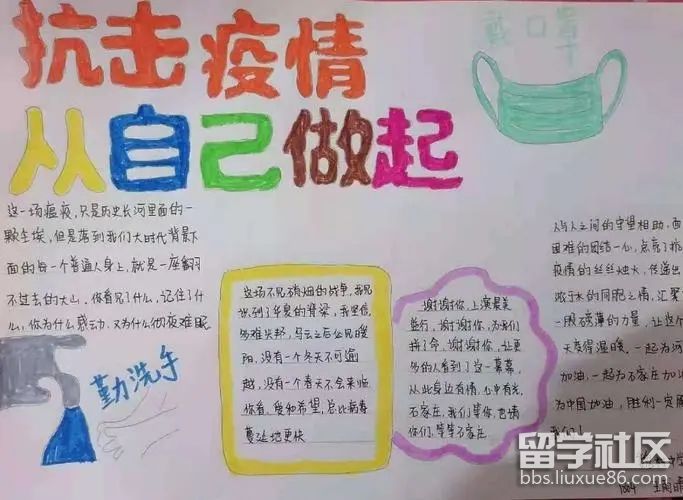 抗击疫情
从自己做起
戴口罩
这一场瘟疫,只是历史长河里面的一
颗尘埃,但是落到我们大时代背景下
面的每一个普遍人身上,就是一座翻
不过去的大山,你看见了什么,记住了什
么,你为什么感动,又为什么彻夜难眠
勤洗手
这场不见硝烟的战争,我见
识到了华夏的脊梁,我坚信,
多难兴邦,乌云之后必见暖
阳,没有一个冬天不可逾
越,没有一个春天不会来临
你看,爱和希望,总比病毒
蔓延地更快
谢谢你,上演最美
逆行,谢谢你,为我们
拼了命,谢谢你,让更
多的人看到了这一幕幕,
从此身边有情,心中有光,
石家庄,我们等你
你们,等等石家庄
人与人之间的守望相助,面
困难的团结一心,点亮了抗
疫情的丝丝烛火,传递出
浓于水的同胞之情,汇聚
一股磅礴的力量,让这个
天变得温暖,一起为河
加油,一起为石家庄加
为中国加油,胜利一定属
我们!
留学社区
bbs.liuxue86.com